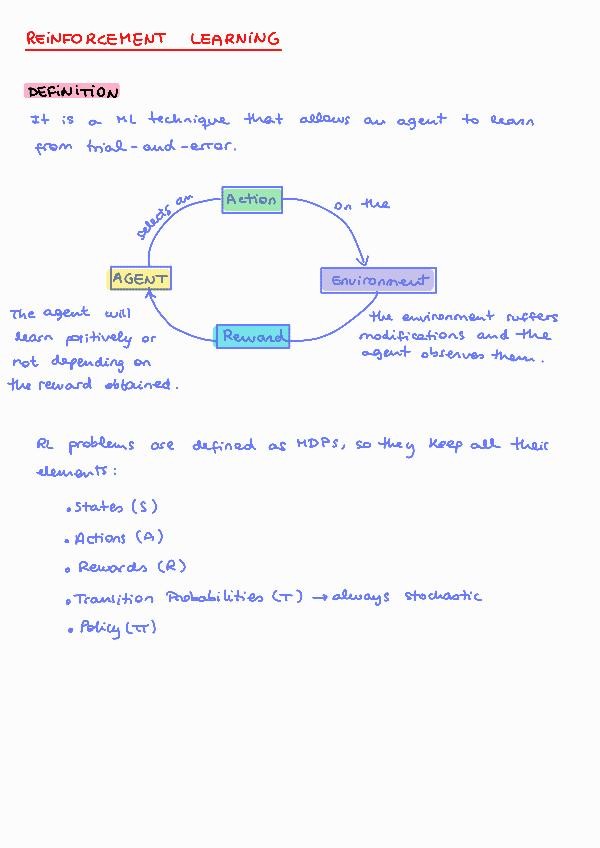 REINFORCEMENT LEARNING
DEFINITION
It is a ML technique that allows an agent to learn
from trial-and-error.
selects an
Action
on the
AGENT
Environment
The agent will
learn positively or
not depending on
the reward obtained.
Reward
the environment suffers
modifications and the
agent observes them.
RL problems are defined as MDPs, so they keep all their
elements:
• States (S)
• Actions (A)
• Rewards (R)
• Transition Probabilities (T) → always stochastic
• Policy (π)